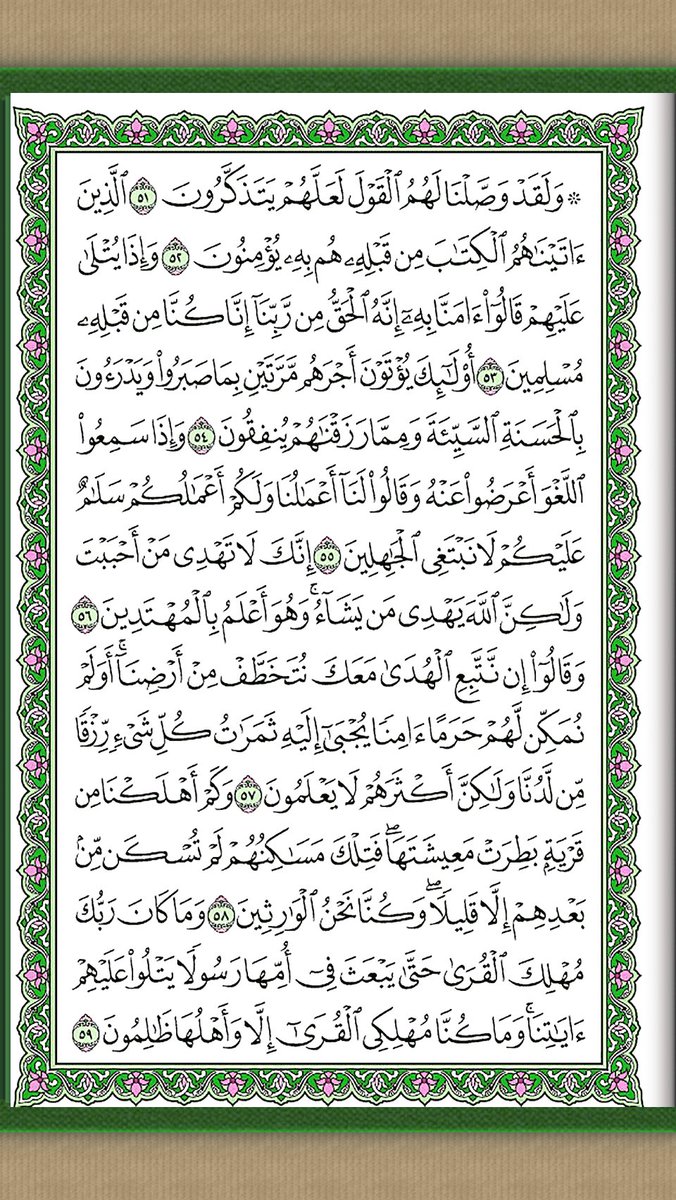 ۞ وَلَقَدْ وَصَّلْنَا لَهُمُ ٱلْقَوْلَ لَعَلَّهُمْ يَتَذَكَّرُونَ ٥١ ٱلَّذِينَ
ءَاتَيْنَٰهُمُ ٱلْكِتَٰبَ مِن قَبْلِهِۦ هُم بِهِۦ يُؤْمِنُونَ ٥٢ وَإِذَا يُتْلَىٰ
عَلَيْهِمْ قَالُوٓا۟ ءَامَنَّا بِهِۦٓ إِنَّهُ ٱلْحَقُّ مِن رَّبِّنَآ إِنَّا كُنَّا مِن قَبْلِهِۦ
مُسْلِمِينَ ٥٣ أُو۟لَٰٓئِكَ يُؤْتَوْنَ أَجْرَهُم مَّرَّتَيْنِ بِمَا صَبَرُوا۟ وَيَدْرَءُونَ
بِٱلْحَسَنَةِ ٱلسَّيِّئَةَ وَمِمَّا رَزَقْنَٰهُمْ يُنفِقُونَ ٥٤ وَإِذَا سَمِعُوا۟
ٱللَّغْوَ أَعْرَضُوا۟ عَنْهُ وَقَالُوا۟ لَنَآ أَعْمَٰلُنَا وَلَكُمْ أَعْمَٰلُكُمْ سَلَٰمٌ
عَلَيْكُمْ لَا نَبْتَغِى ٱلْجَٰهِلِينَ ٥٥ إِنَّكَ لَا تَهْدِى مَنْ أَحْبَبْتَ
وَلَٰكِنَّ ٱللَّهَ يَهْدِى مَن يَشَآءُ ۚ وَهُوَ أَعْلَمُ بِٱلْمُهْتَدِينَ ٥٦
وَقَالُوٓا۟ إِن نَّتَّبِعِ ٱلْهُدَىٰ مَعَكَ نُتَخَطَّفْ مِنْ أَرْضِنَآ ۚ أَوَلَمْ
نُمَكِّن لَّهُمْ حَرَمًا ءَامِنًا يُجْبَىٰٓ إِلَيْهِ ثَمَرَٰتُ كُلِّ شَىْءٍ رِّزْقًا
مِّن لَّدُنَّا وَلَٰكِنَّ أَكْثَرَهُمْ لَا يَعْلَمُونَ ٥٧ وَكَمْ أَهْلَكْنَا مِن
قَرْيَةٍۭ بَطِرَتْ مَعِيشَتَهَا ۖ فَتِلْكَ مَسَٰكِنُهُمْ لَمْ تُسْكَن مِّنۢ
بَعْدِهِمْ إِلَّا قَلِيلًا ۖ وَكُنَّا نَحْنُ ٱلْوَٰرِثِينَ ٥٨ وَمَا كَانَ رَبُّكَ
مُهْلِكَ ٱلْقُرَىٰ حَتَّىٰ يَبْعَثَ فِىٓ أُمِّهَا رَسُولًا يَتْلُوا۟ عَلَيْهِمْ
ءَايَٰتِنَا ۚ وَمَا كُنَّا مُهْلِكِى ٱلْقُرَىٰٓ إِلَّا وَأَهْلُهَا ظَٰلِمُونَ ٥٩